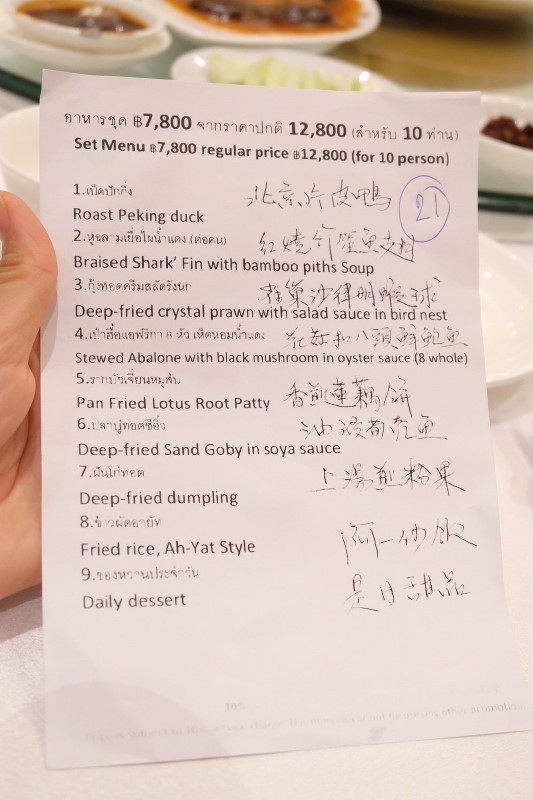 อาหารชุด ฿7,800 จากราคาปกติ 12,800 (สำหรับ 10 ท่าน)
Set Menu ฿7,800 regular price ฿12,800 (for 10 person)
21
1.เป็ดปักกิ่ง 北京片皮鴨
Roast Peking duck
2.หูฉลามเยื่อไผ่น้ำแดง (ต่อคน) 红燒竹笙魚翅
Braised Shark' Fin with bamboo piths Soup
3.กุ้งทอดครีมสลัดรังนก 雀巢沙律明蝦球
Deep-fried crystal prawn with salad sauce in bird nest
4.เป๋าฮื้อแอฟริกา 8 หัว เห็ดหอมน้ำแดง 花菇扣八頭鮮鮑魚
Stewed Abalone with black mushroom in oyster sauce (8 whole)
5.รากบัวเจี๋ยนหมูสับ 香煎蓮藕餅
Pan Fried Lotus Root Patty
6.ปลาบู่ทอดซีอิ๊ว 油浸荀壳魚
Deep-fried Sand Goby in soya sauce
7.ฝันโก๋ทอด 上湯煎粉果
Deep-fried dumpling
8.ข้าวผัดอายัท 阿一炒飯
Fried rice, Ah-Yat Style
9.ของหวานประจำวัน 是日甜品
Daily dessert
10%